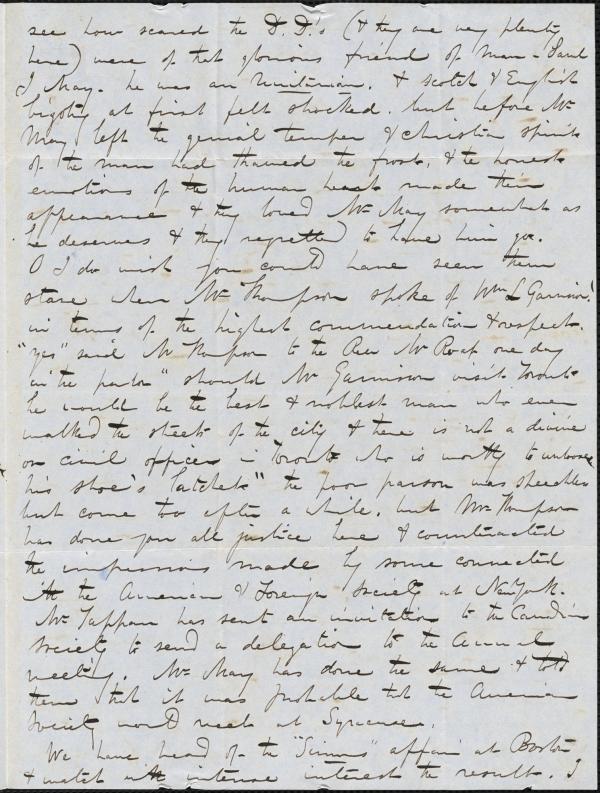 see how scared the D.D.'s (& they are very plenty
here) were of that glorious friend of man - Saml
J May. he was an Unitarian. & scotch & English
bigotry at first felt shocked. but before Mr
May left the genial temper & christian spirit
of the man had thawed the frost, & the honest
emotions of the human heart made their
appearance & they loved Mr May somewhat as
he deserves & they regretted to have him go.
O I do wish you could have seen them
stare when Mr Thompson spoke of Wm L Garrison!
in terms of the highest commendation & respect.
"Yes" said Mr Thompson to the Rev Mr Roaf one day
in the parlor "should Mr Garrison visit Toronto
he would be the best & noblest man who ever
walked the streets of the city & there is not a divine
or civil officer in Toronto who is worthy to unloose
his shoe's latchets" the poor parson was speechless
but come too after a while. but Mr Thompson
has done you all justice here & counteracted
the impressions made by some connected
ith the American & Foreign Society at New York.
Mr Tappan has sent an invitation to the Canadian
Society to send a delegation to the Annual
meeting. Mr May has done the same & told
them that it was probable that the American
Society would meet at Syracuse.
We have heard of the "Simms" affair at Boston
& watch with intense interest the result. I